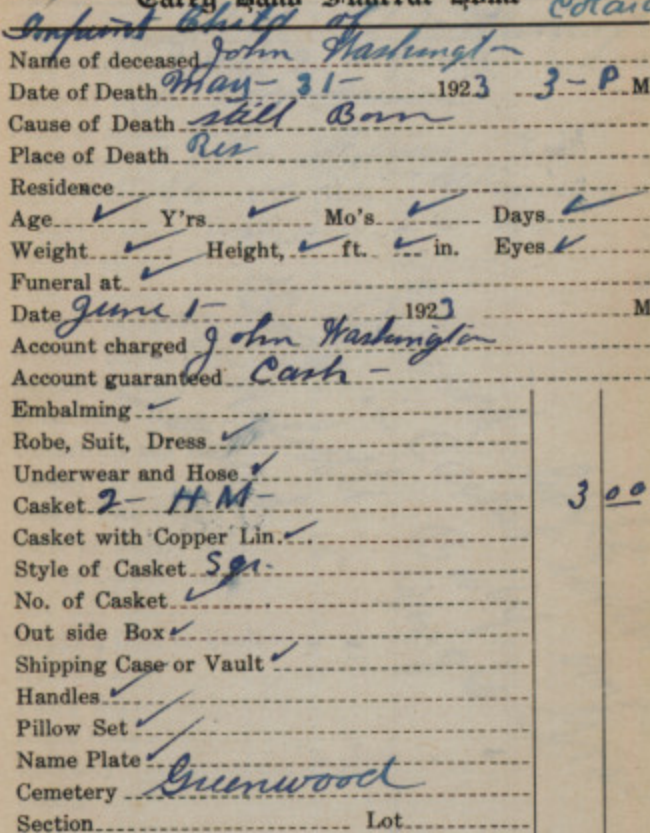 Carry Hand Funeral Home
Infant Child of
Name of deceased John Washington
Date of Death May - 31 - 1923 3 - P M
Cause of Death still Born
Place of Death Res
Residence
Age ✓ Y'rs ✓ Mo's ✓ Days ✓
Weight ✓ Height, ✓ ft. ✓ in. Eyes ✓
Funeral at ✓
Date June 1 - 1923 M
Account charged John Washington
Account guaranteed Cash -
Embalming ✓
Robe, Suit, Dress ✓
Underwear and Hose ✓
Casket 2 - H M - 3 00
Casket with Copper Lin. ✓
Style of Casket Sqr.
No. of Casket ✓
Out side Box ✓
Shipping Case or Vault ✓
Handles ✓
Pillow Set ✓
Name Plate ✓
Cemetery Greenwood
Section Lot